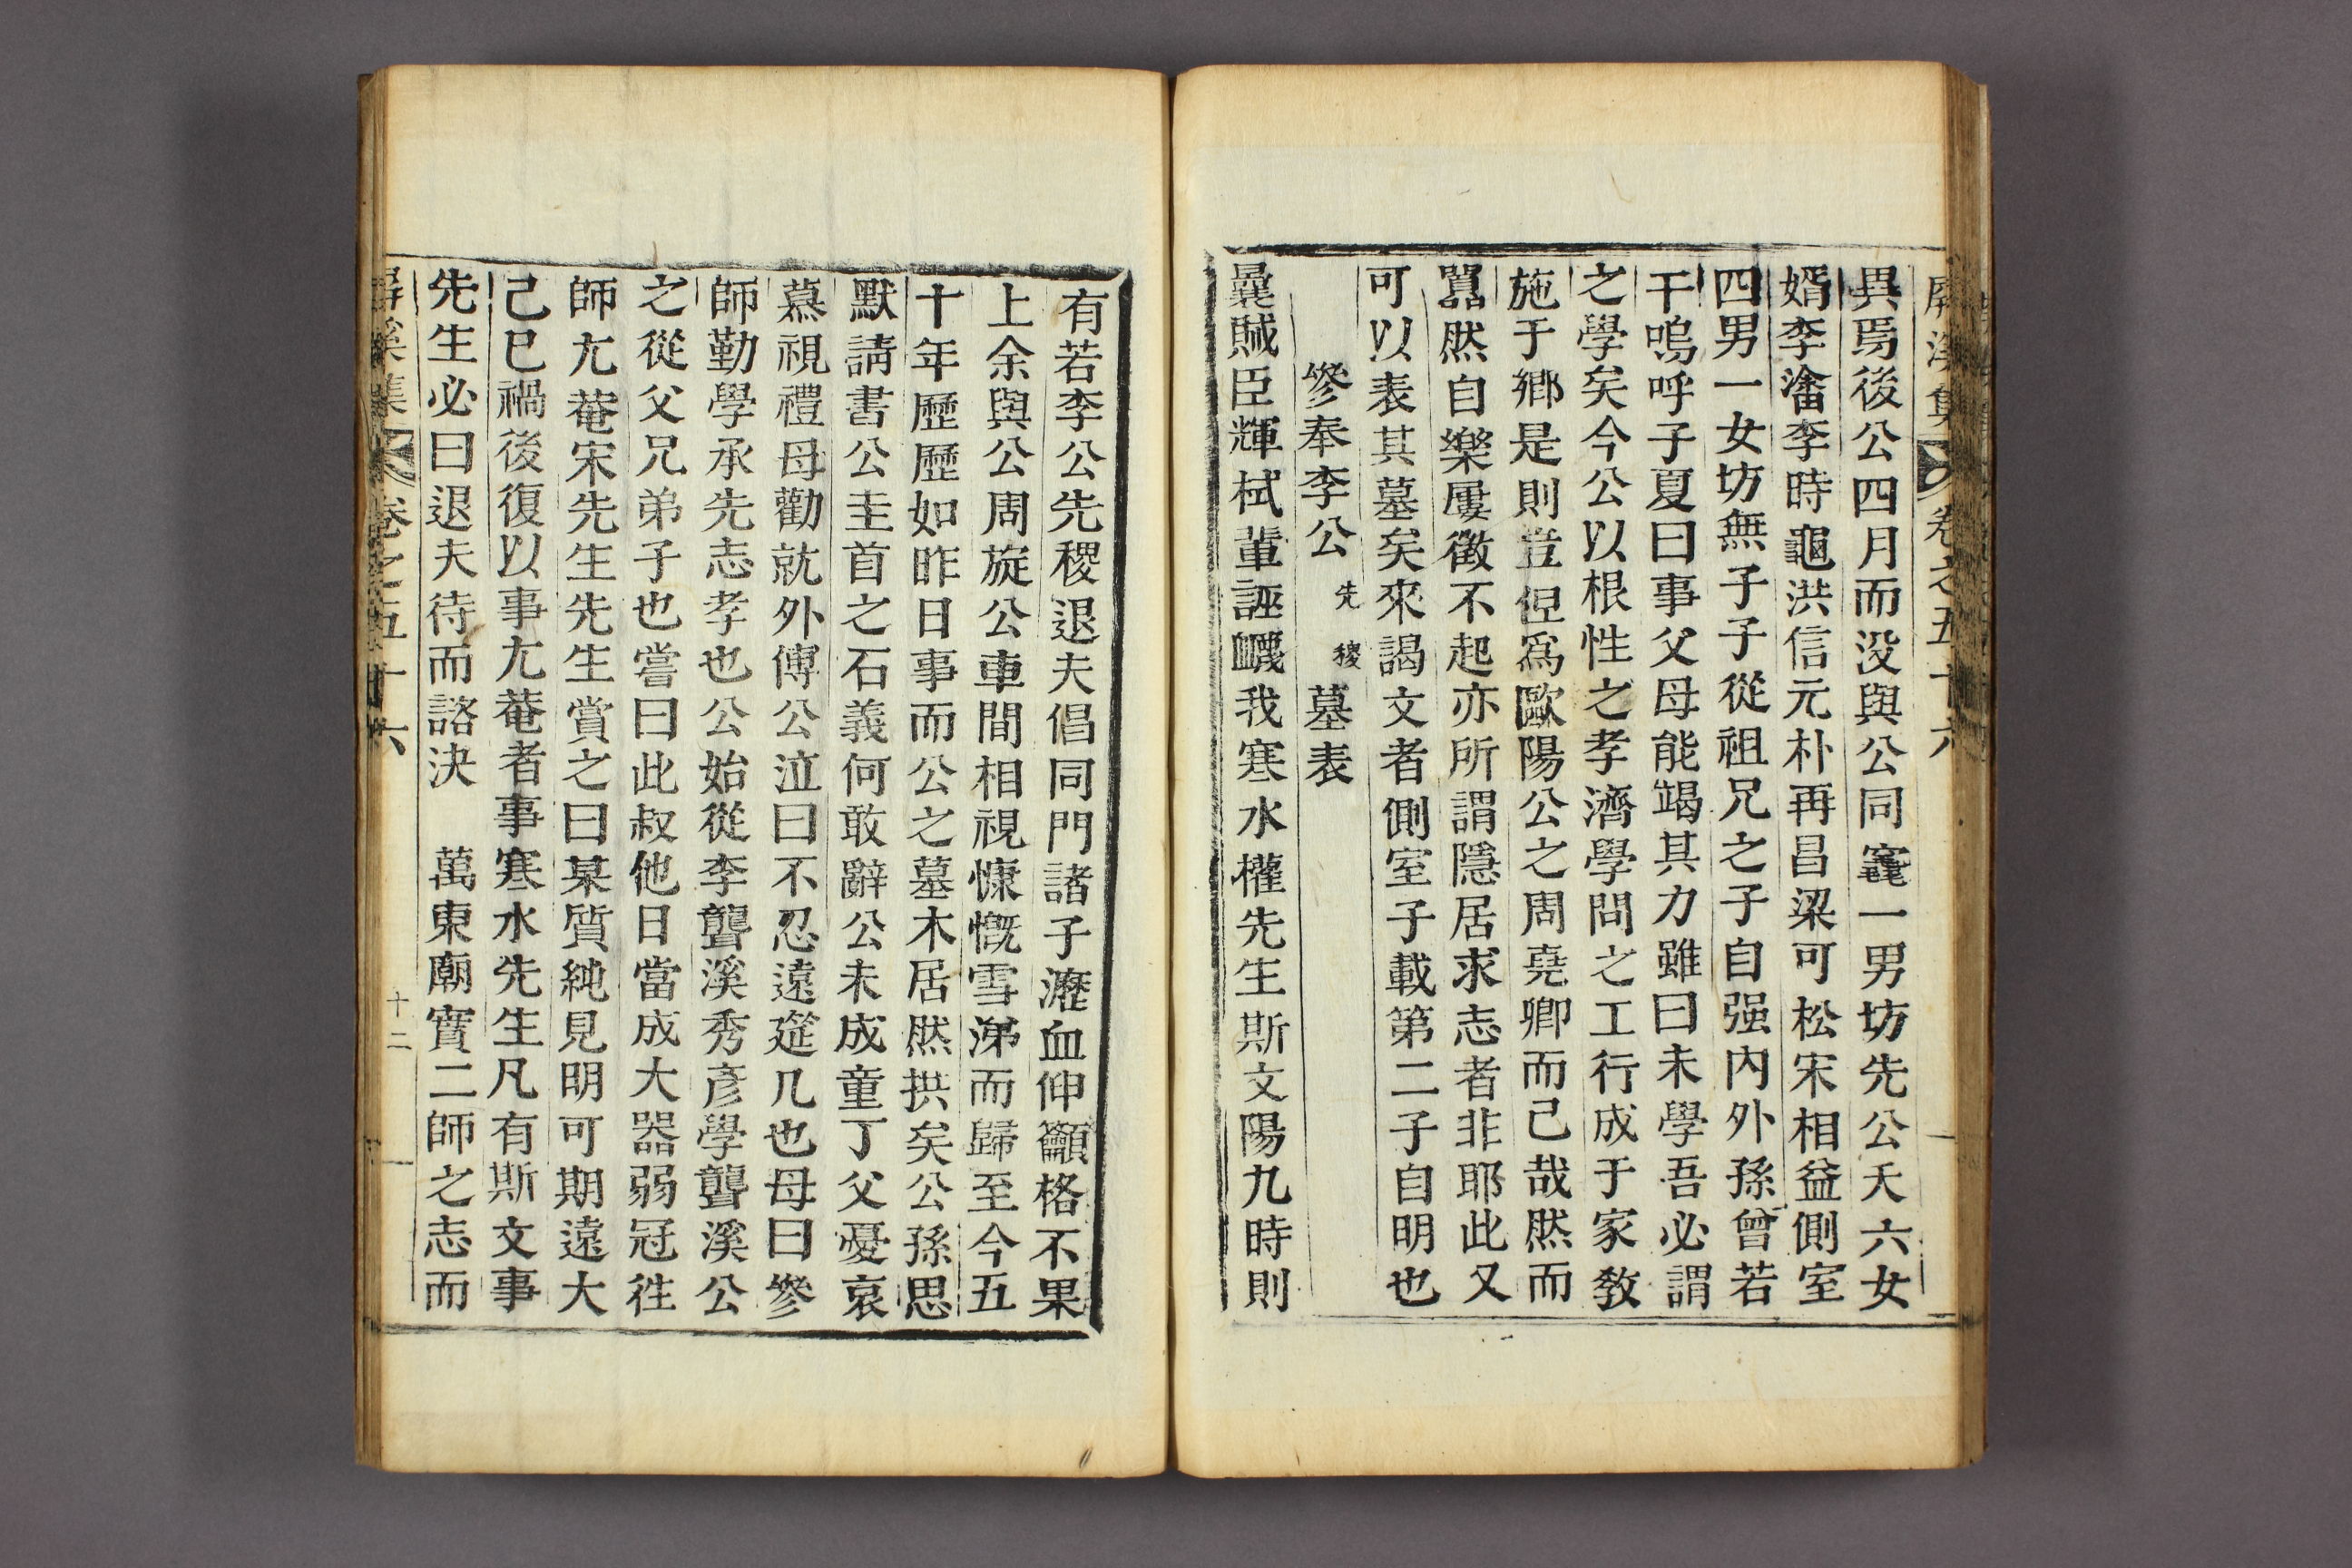 屛溪集 卷之五十六
異焉後公四月而没與公同窆一男坊先公夭六女
婿李瀋李時龜洪信元朴再昌梁可松宋相益側室
四男一女坊無子子從祖兄之子自强内外孫曾若
干嗚呼子夏曰事父母能竭其力雖曰未學吾必謂
之學矣今公以根性之孝濟學問之工行成于家敎
施于鄕是則豈但爲歐陽公之周堯卿而己哉然而
囂然自樂屢徵不起亦所謂隱居求志者非耶此又
可以表其墓矣來謁文者側室子載第二子自明也
參奉李公 先稷 墓表
曩賊臣輝栻輩誣衊我寒水權先生斯文陽九時則
有若李公先稷退夫倡同門諸子瀝血仰籲格不果
上余與公周旋公車間相視慷慨雪涕而歸至今五
十年歷歷如昨日事而公之墓木居然拱矣公孫思
默請書公圭首之石義何敢辭公未成童丁父憂哀
慕視禮母勸就外傅公泣曰不忍遠筵几也母曰參
師勤學承先志孝也公始從李聾溪秀彦學聾溪公
之從父兄弟子也嘗曰此叔他日當成大器弱冠徃
師尤菴宋先生先生賞之曰某質純見明可期遠大
己巳禍後復以事尤菴者事寒水先生凡有斯文事
先生必曰退夫待而諮決 萬東廟實二師之志而
屛溪集 卷之五十六 十二